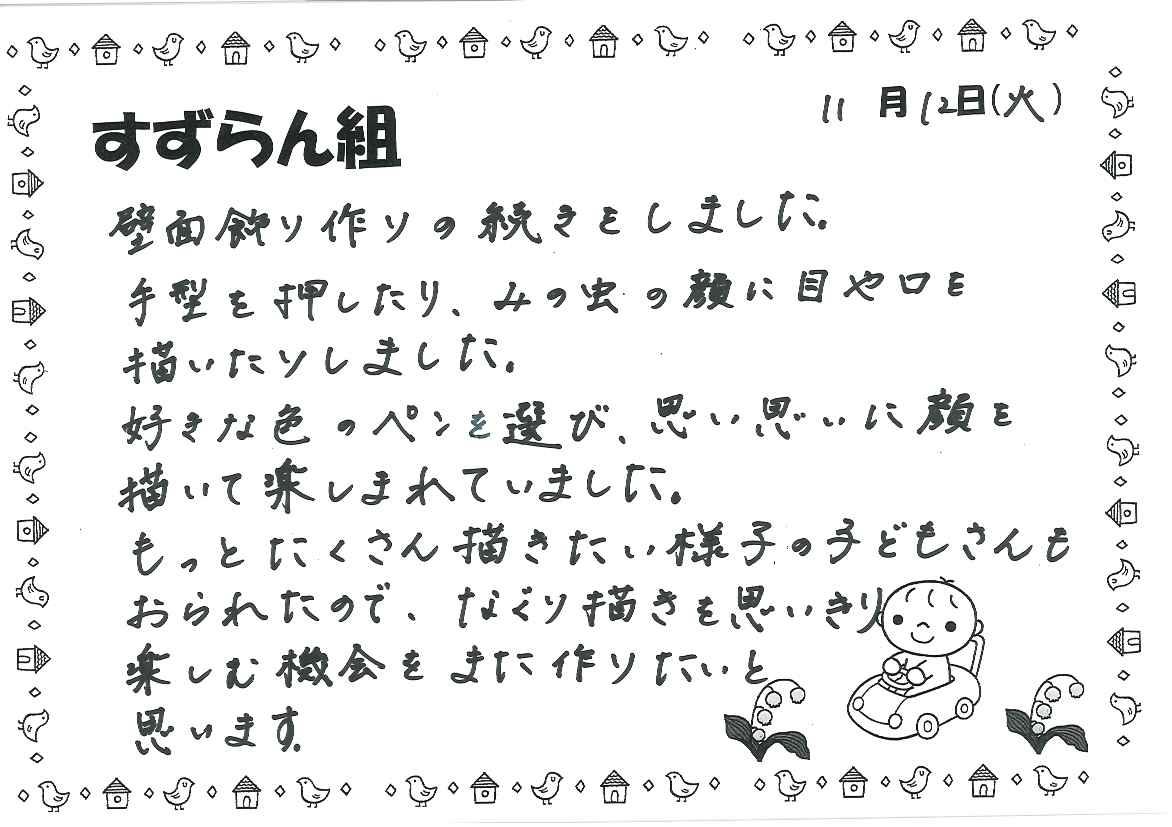 11月12日(火)
すずらん組
壁面飾り作りの続きをしました。
手型を押したり、みの虫の顔に目や口を
描いたりしました。
好きな色のペンを選び、思い思いに顔を
描いて楽しまれていました。
もっとたくさん描きたい様子の子どもさんも
おられたので、なぐり描きを思いきり
楽しむ機会をまた作りたいと
思います。